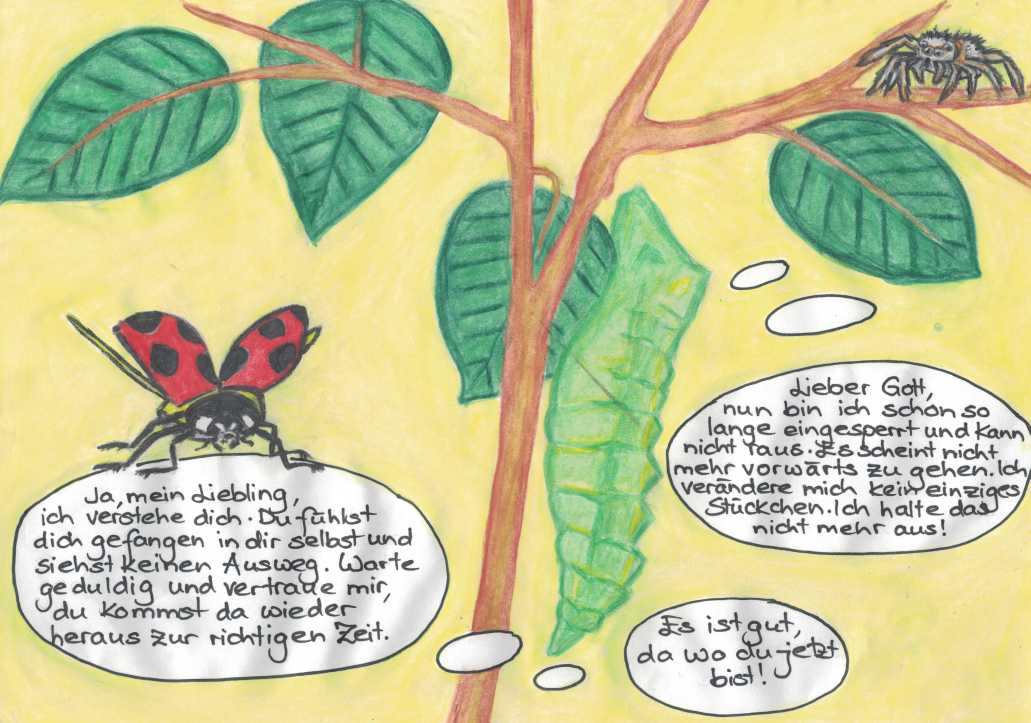 Lieber Gott,
nun bin ich schon so
lange eingesperrt und kann
nicht raus. Es scheint nicht
mehr vorwärts zu gehen. Ich
verändere mich kein einziges
Stückchen. Ich halte das
nicht mehr aus!
Ja, mein Liebling,
ich verstehe dich. Du fühlst
dich gefangen in dir selbst und
siehst keinen Ausweg. Warte
geduldig und vertraue mir,
du kommst da wieder
heraus zur richtigen Zeit.
Es ist gut,
da wo du jetzt
bist!